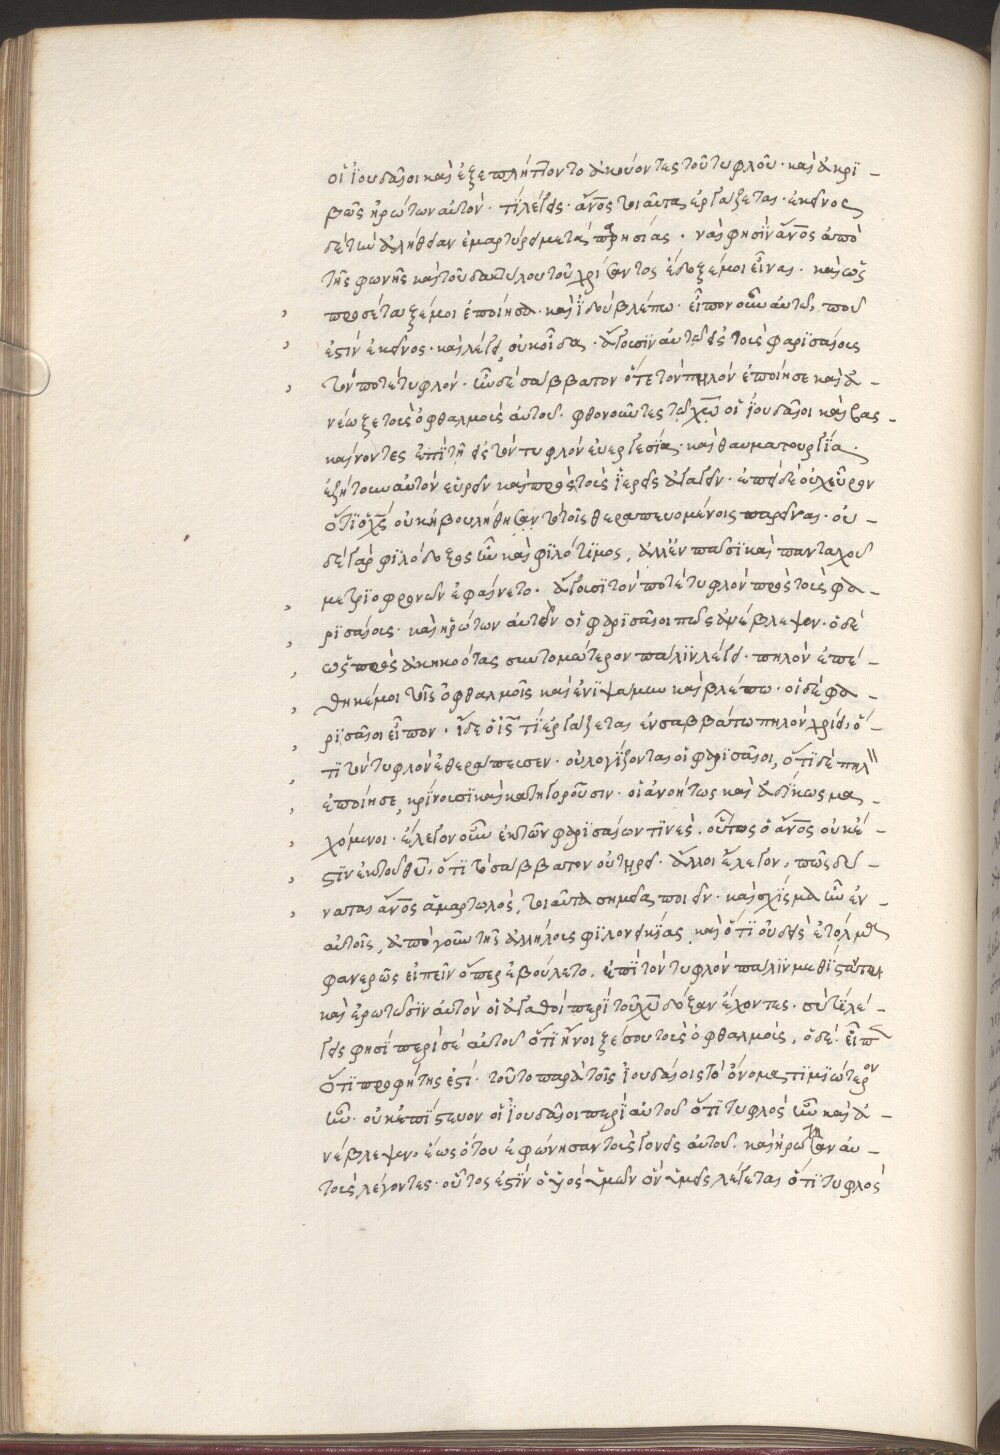 οἱ ἰουδαῖοι καὶ ἐξεπλήττοντο ἀκούοντες τοῦ τυφλοῦ· καὶ ἀκρι-
βῶς ἠρώτων αὐτόν· τί λέγεις· ἄνος τοιαῦτα ἐργάζεται· ἐκεῖνος
δὲ τὴν ἀλήθειαν ἐμαρτύρει μετὰ παρησίας· ναὶ φησὶν ἄνος ἀπὸ
τῆς φωνῆς καὶ τοῦ δακτύλου τοῦ χρίσαντος ἔδοξέ μοι εἶναι· καὶ ὡς
προσέταξέ μοι ἐποίησα· καὶ ἰδοὺ βλέπω· εἶπον οὖν αὐτῷ, ποῦ
ἐστὶν ἐκεῖνος· καὶ λέγει, οὐκ οἶδα· ἄγουσιν αὐτὸν εἰς τοὺς φαρισαίους
τόν ποτε τυφλόν· ἦν δὲ σάββατον ὅτε τὸν πηλὸν ἐποίησε καὶ ἀ-
νέωξε τοὺς ὀφθαλμοὺς αὐτοῦ· φθονοῦντες τῷ χῶ οἱ ἰουδαῖοι καὶ βας-
καίνοντες ἐπὶ τῇ εἰς τὸν τυφλὸν εὐεργεσίᾳ· καὶ θαυματουργίᾳ·
ἐζήτουν αὐτὸν εὑρεῖν καὶ πρὸς τοὺς ἱερεῖς ἀγαγεῖν· ἐπεὶ δὲ οὐχ εὗρον
ὅτι ὁ χς οὐκ ἠβουλήθη σὺν τοῖς θεραπευομένοις παρεῖναι· οὐ-
δὲ γὰρ φιλόδοξος ἦν καὶ φιλότιμος, ἀλλ' ἐν πᾶσι καὶ πανταχοῦ
μετριοφρονῶν ἐφαίνετο· ἄγουσι τόν ποτε τυφλὸν πρὸς τοὺς φα-
ρισαίους· καὶ ἠρώτων αὐτὸν οἱ φαρισαῖοι πῶς ἀνέβλεψεν· ὁ δὲ
ὡς πρὸς ἀκηκοότας συντομώτερον πάλιν λέγει· πηλὸν ἐπέ-
θηκέ μοι τοῖς ὀφθαλμοῖς καὶ ἐνιψάμην καὶ βλέπω· οἱ δὲ φα-
ρισαῖοι εἶπον· ἴδε ὁ ις τί ἐργάζεται ἐν σαββάτω πηλὸν χρίει, ὅ-
τι τὸν τυφλὸν ἐθεράπευσεν· οὐ λογίζονται οἱ φαρισαῖοι, ὅτι δὲ πηλ
ἐποίησε, κρίνουσι καὶ κατηγοροῦσιν· οἱ ἀνοήτως καὶ ἀδίκως μα-
χόμενοι· ἔλεγον οὖν ἐκ τῶν φαρισαίων τινές· οὗτος ὁ ἄνος οὐκ ἔ-
στιν ἐκ τοῦ θυ, ὅτι τὸ σάββατον οὐ τηρεῖ· ἄλλοι ἔλεγον, πῶς δύ-
ναται ἄνος ἁμαρτωλὸς, τοιαῦτα σημεῖα ποιεῖν· καὶ σχίσμα ἦν ἐν-
αὐτοῖς, ἀπὸ γοῦν τῆς ἀλλήλοις φιλονεικίας, καὶ ὅτι οὐδεὶς ἐτόλμα
φανερῶς εἰπεῖν ὅπερ ἐβούλετο, ἐπὶ τὸν τυφλὸν πάλιν μεθίστανται
καὶ ἐρωτῶσιν αὐτὸν οἱ ἀγαθοὶ περὶ τοῦ χυ δόξαν ἔχοντες· σὺ τί λέ-
γεις φησὶ περὶ σὲ αὐτοῦ ὅτι ἤνοιξέ σου τοὺς ὀφθαλμούς, ὁ δὲ εἶπ
ὅτι προφήτης ἐστί· τοῦτο παρὰ τοῖς ἰουδαίοις τὸ ὄνομα τιμιώτερον
ἦν· οὐκ ἐπίστευον οἱ ἰουδαῖοι περὶ αὐτοῦ ὅτι τυφλὸς ἦν καὶ ἀ-
νέβλεψεν· ἕως ὅτου ἐφώνησαν τοὺς γονεῖς αὐτοῦ· καὶ ἠρώτησαν αὐ-
τοὺς λέγοντες· οὗτος ἐστὶν ὁ υἱὸς ὑμῶν ὃν ὑμεῖς λέγεται ὅτι τυφλὸς